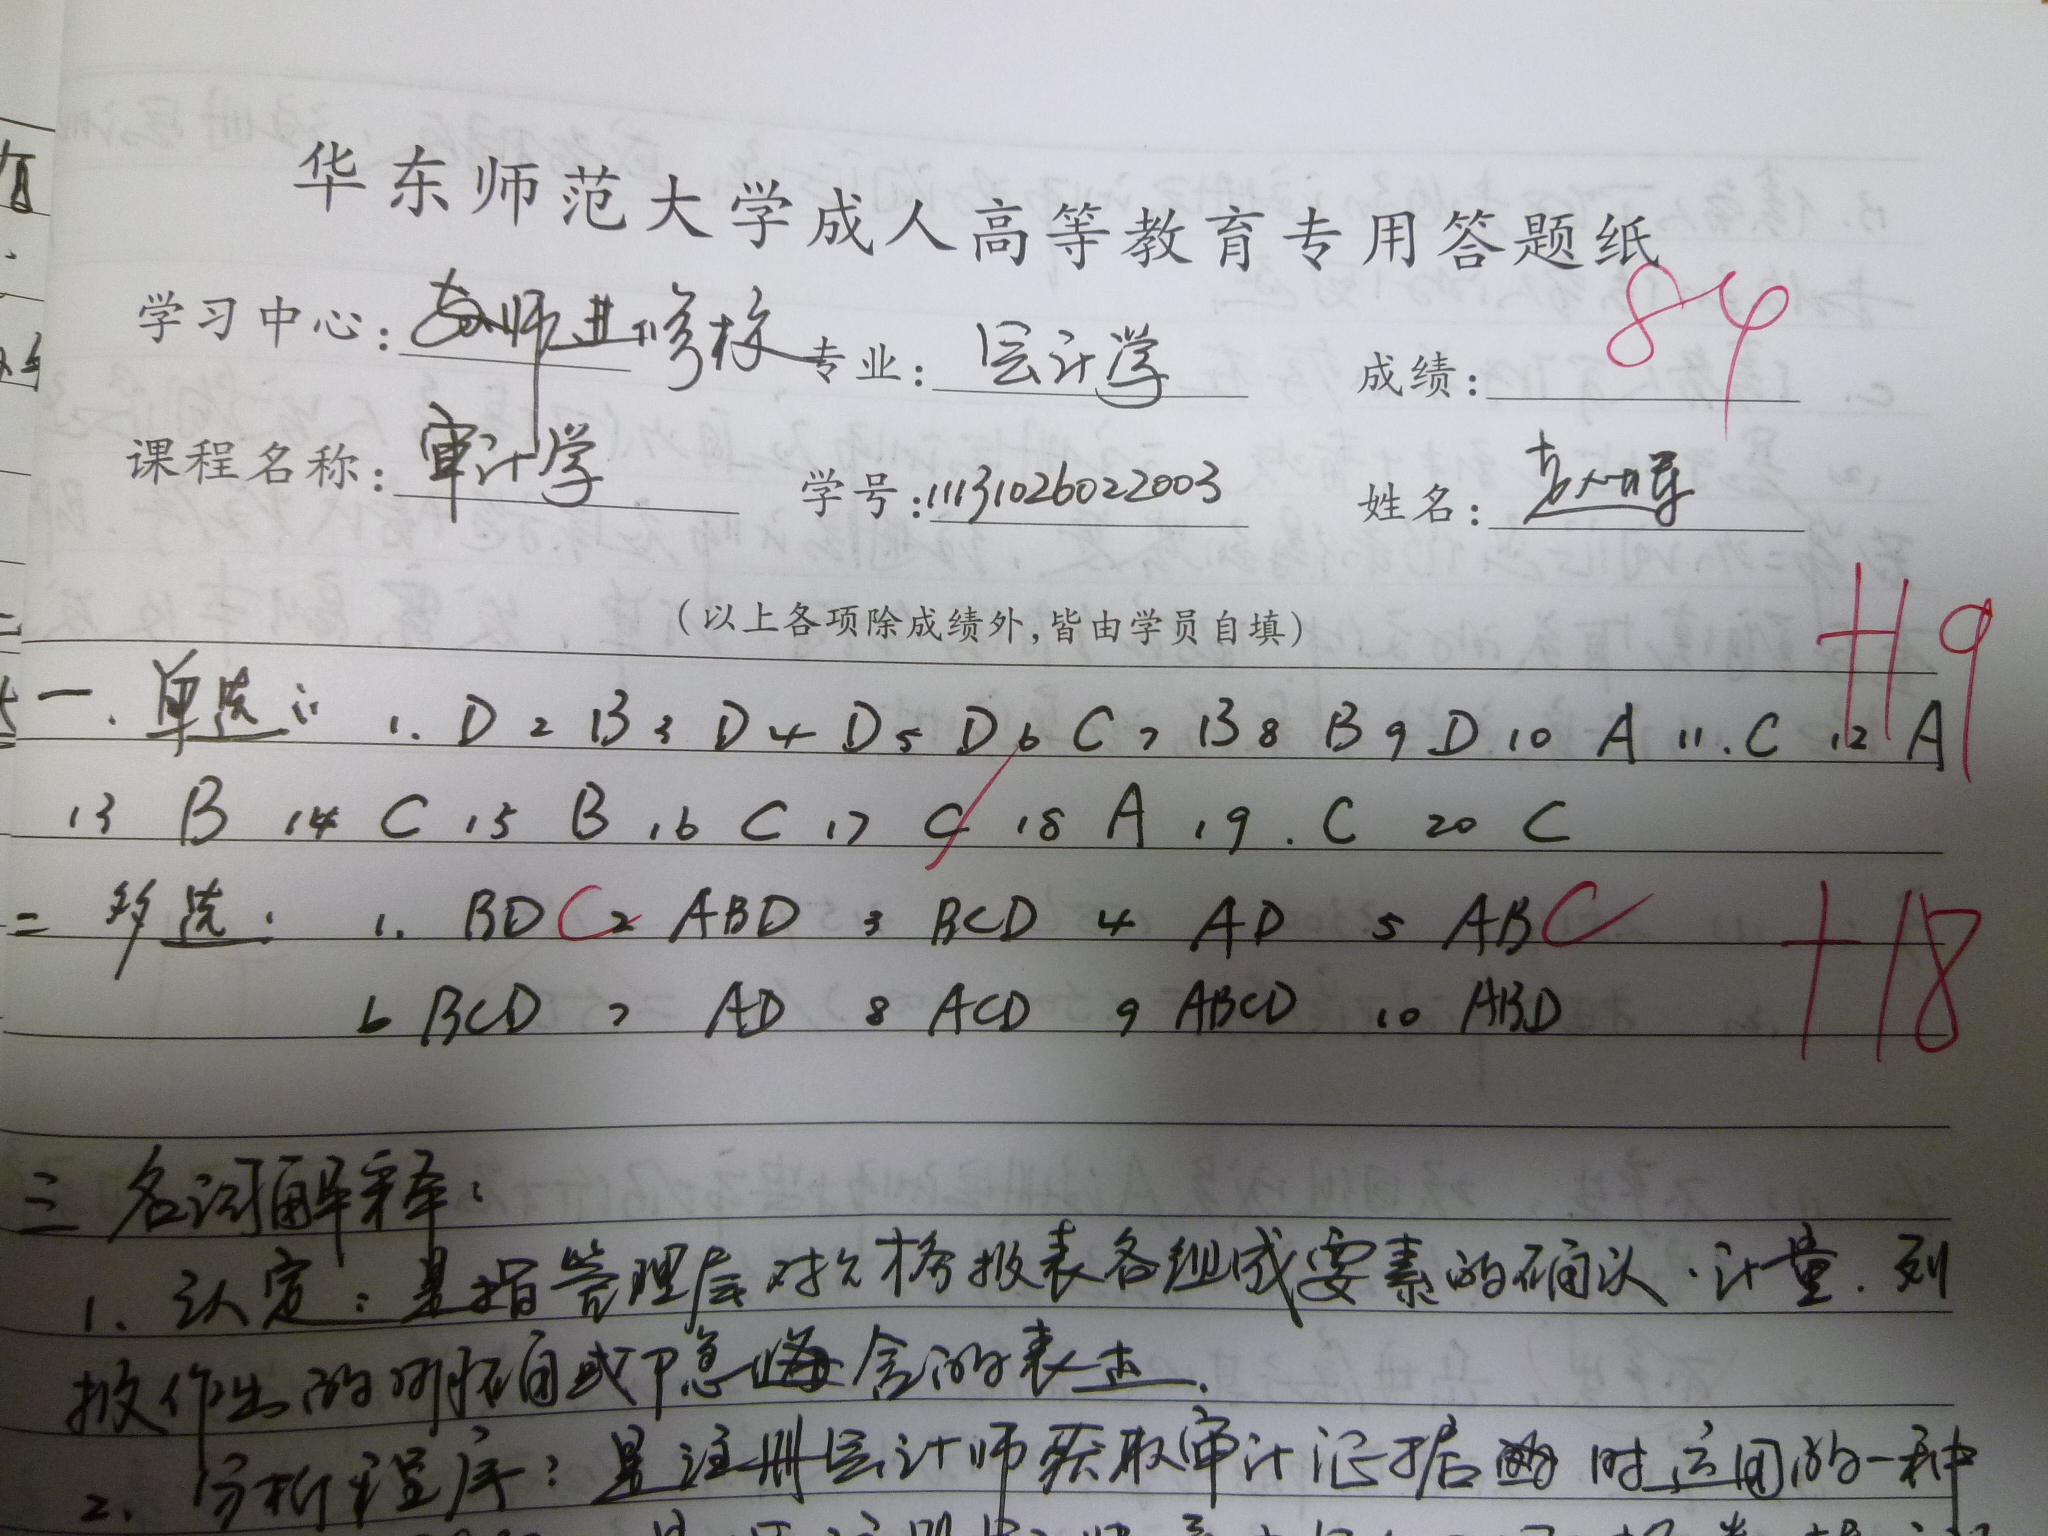 华东师范大学成人高等教育专用答题纸
学习中心: 师进修校 专业: 会计学 成绩: 84
课程名称: 审计学 学号: 11131026022003 姓名:
(以上各项除成绩外,皆由学员自填)
+19
一、单选: 1. D 2 B 3 D 4 D 5 D 6 C 7 B 8 B 9 D 10 A 11. C 12 A
13 B 14 C 15 B 16 C 17 C 18 A 19. C 20 C
二 多选: 1. BDC 2 ABD 3 BCD 4 AD 5 ABC +18
6 BCD 7 AD 8 ACD 9 ABCD 10 ABD
三 名词解释:
1. 认定: 是指管理层对报表各组成要素的确认.计量.列
报作出的明确或隐含的表达.
2. 分析程序: 是注册会计师获取审计证据时运用的一种